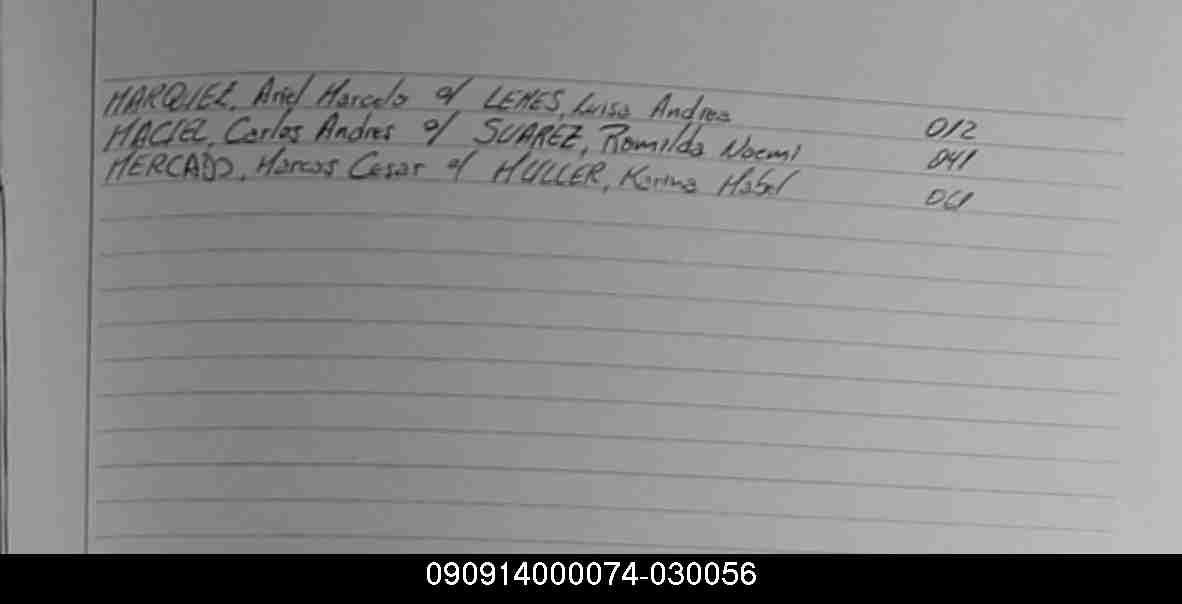 MARQUEZ, Ariel Marcelo c/ LEMES, Luisa Andrea 012
MACIEL, Carlos Andres c/ SUAREZ, Romilda Noemi 041
MERCADO, Marcos Cesar c/ MULLER, Karina Mabel 061
090914000074-030056